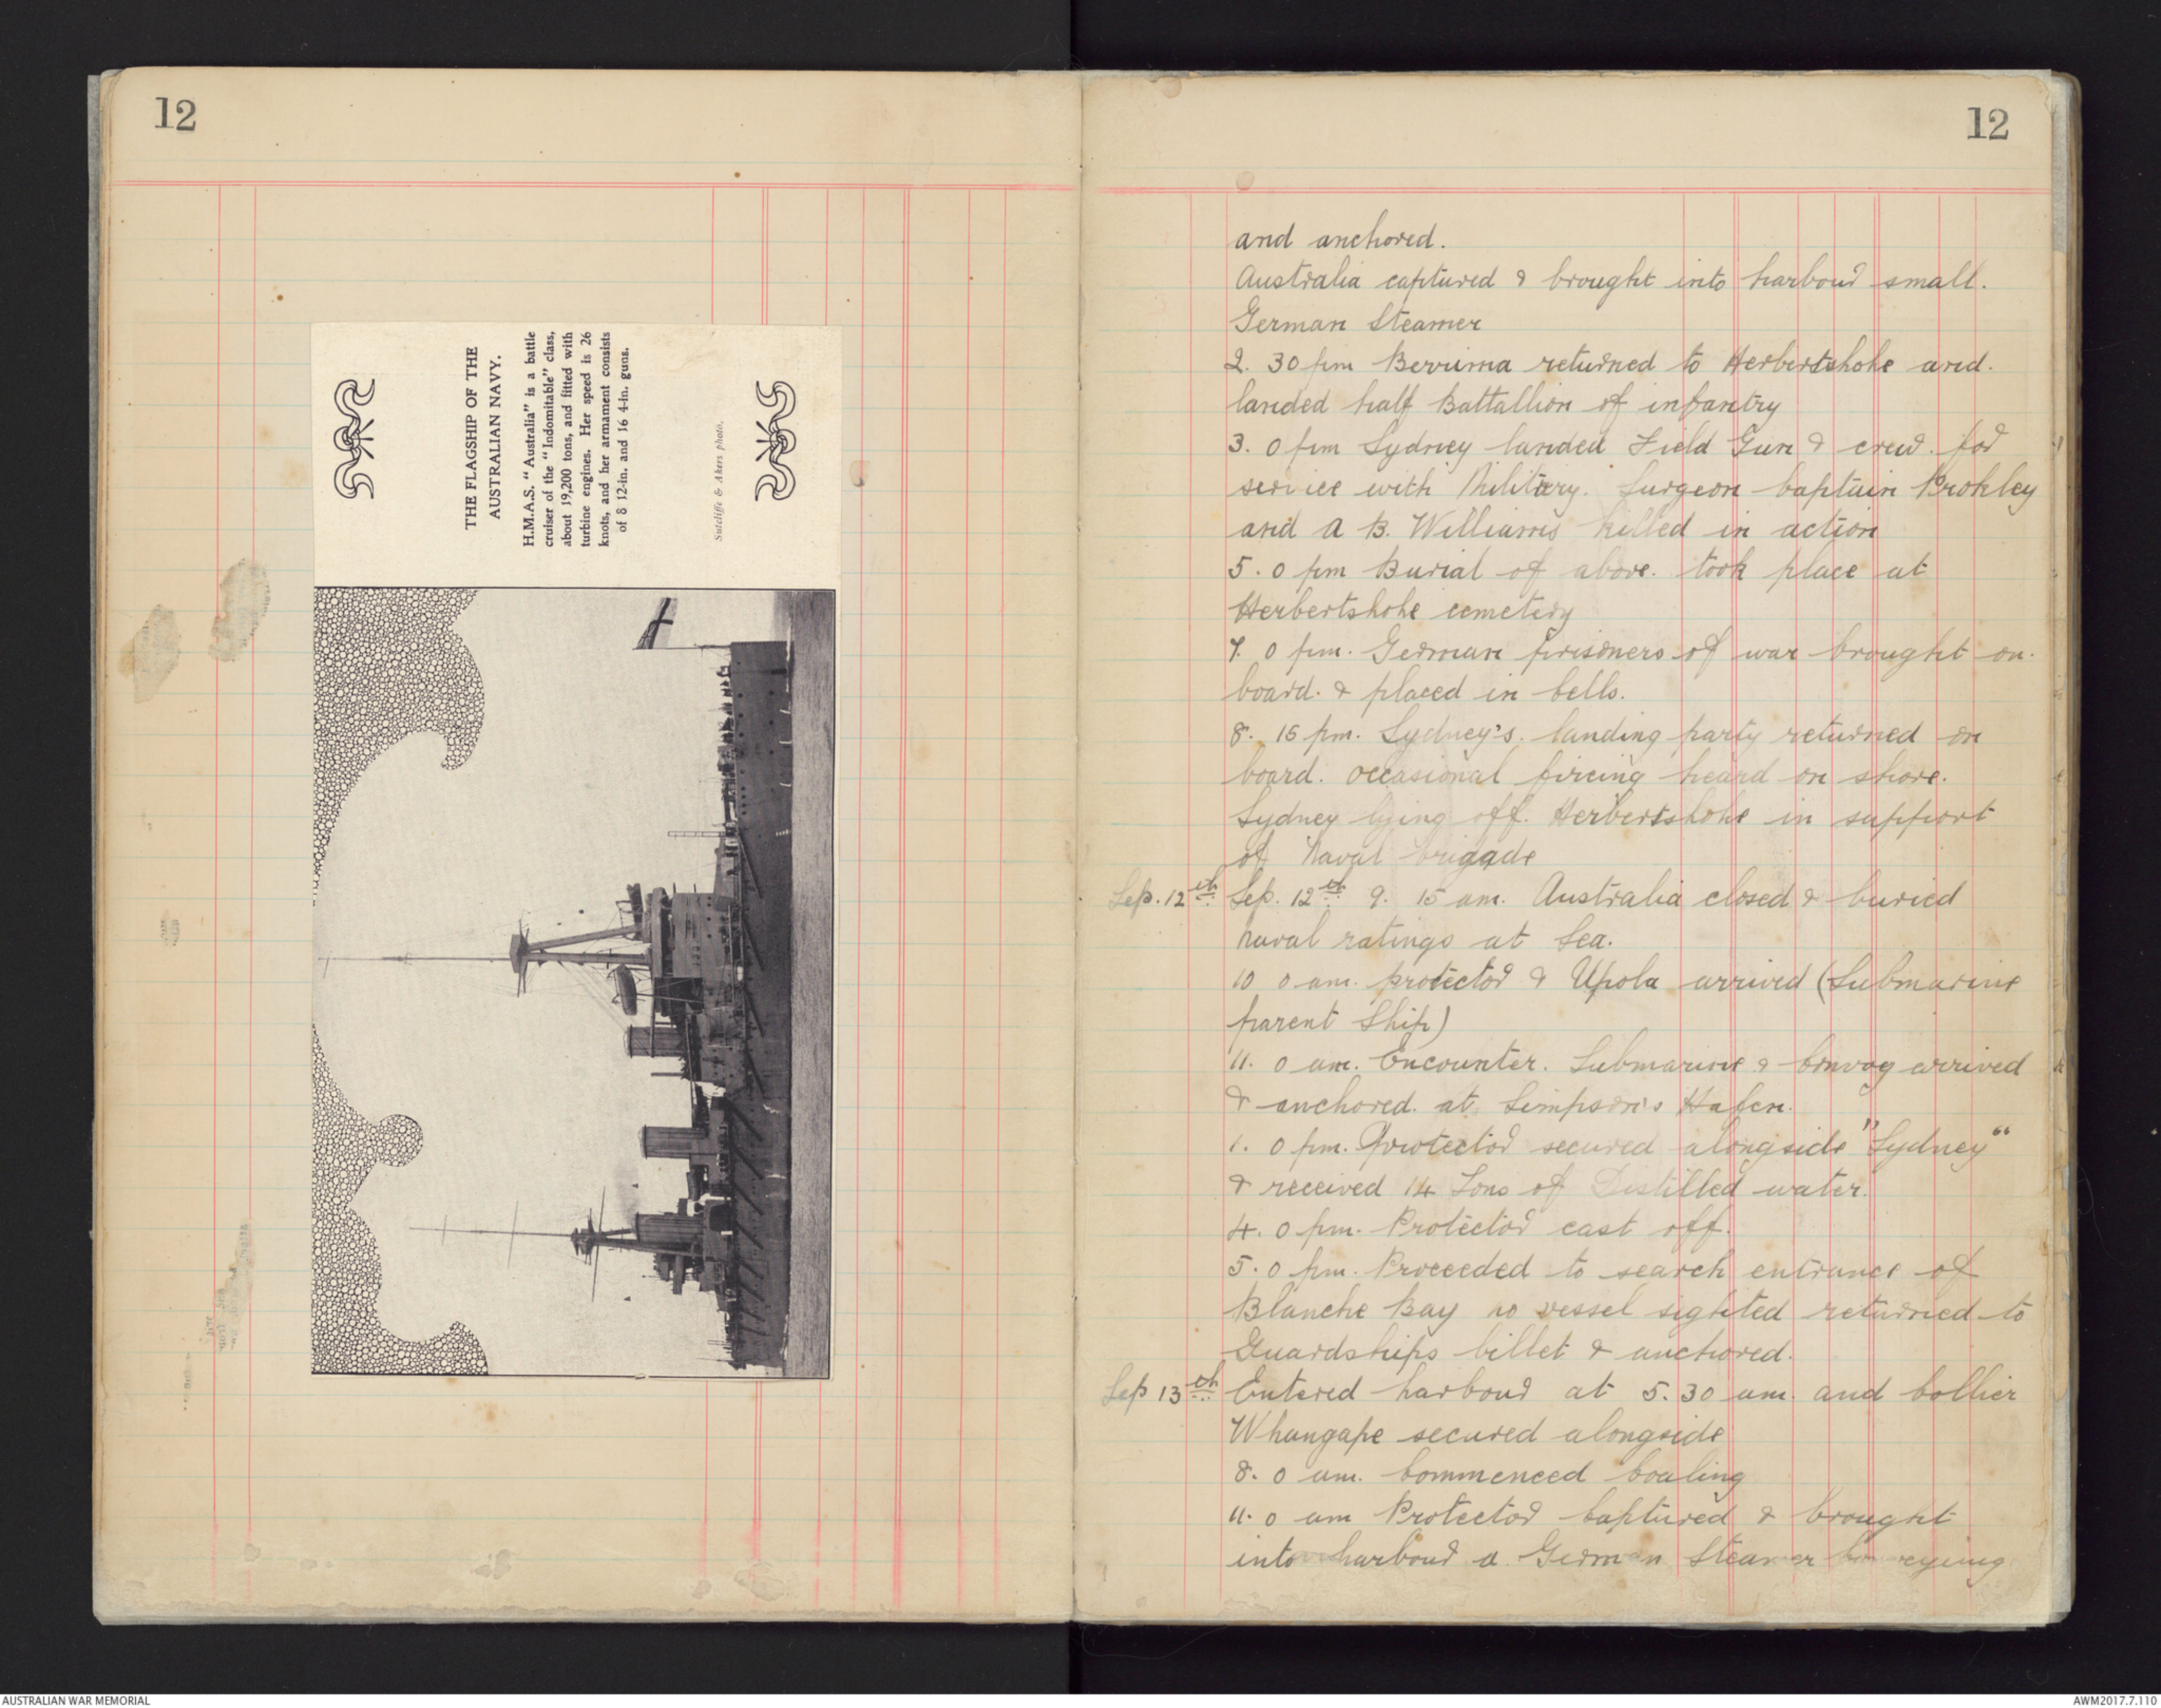 12
THE FLAGSHIP OF THE
AUSTRALIAN NAVY.
H.M.A.S. "Australia" is a battle
cruiser of the "Indomitable" class,
about 19,200 tons, and fitted with
turbine engines. Her speed is 26
knots, and her armament consists
of 8 12-in. and 16 4-in. guns.
Sutcliffe & Akers photo.
12
and anchored.
Australia captured & brought into harbour small.
German Steamer
2. 30 pm Berrima returned to Herbertshohe and.
landed half Battallion of infantry
3. 0 pm Sydney landed Field Gun & crew. for
service with Military. Surgeon Captain Prokley
and A B. Williams killed in action
5. 0 pm Burial of above. took place at
Herbertshohe cemetery
7. 0 pm. German prisoners of war brought on.
board. & placed in Cells.
8. 15 pm. Sydney's. landing party returned on
board. occasional fireing heard on shore.
Sydney lying off. Herbertshohe in support
of Naval brigade
Sep. 12th Sep. 12th 9. 15 am. Australia closed & buried
naval ratings at Sea.
10 0 am. protector & Upola arrived (Submarine
parent Ship)
11. 0 am. Encounter. Submarine & Convoy arrived
& anchored. at Simpson's Hafen.
1. 0 pm. Protector secured alongside "Sydney"
& received 14 Tons of Distilled water.
4. 0 pm. Protector cast off.
5. 0 pm. Proceeded to search entrance of
Blanche Bay no vessel sighted returned to
Guardships billet & anchored.
Sep 13th Entered harbour at 5. 30 am. and Collier
Whangape secured alongside
8. 0 am. Commenced Coaling
11. 0 am Protector Captured & brought
into harbour a German Steamer Conveying
AUSTRALIAN WAR MEMORIAL
AWM2017.7.110